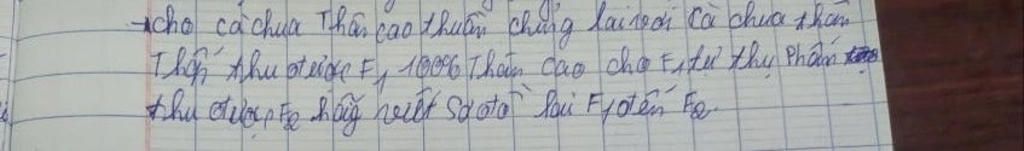 →cho cà chua Thân cao thuần chủng lai với Cà chua thân
Thấp thu được F1 100% Thân cao cho F1 tự thụ phấn
thu được F2 hãy viết sơ đồ lai F1 đến F2